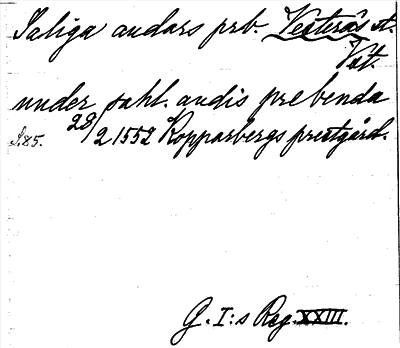 Saliga andars prb. Vesterås st.
Vst.
under sahl. andis prebenda
S.85. 28/2 1552 Kopparbergs prestgård.
G. I:s Reg. XXIII.